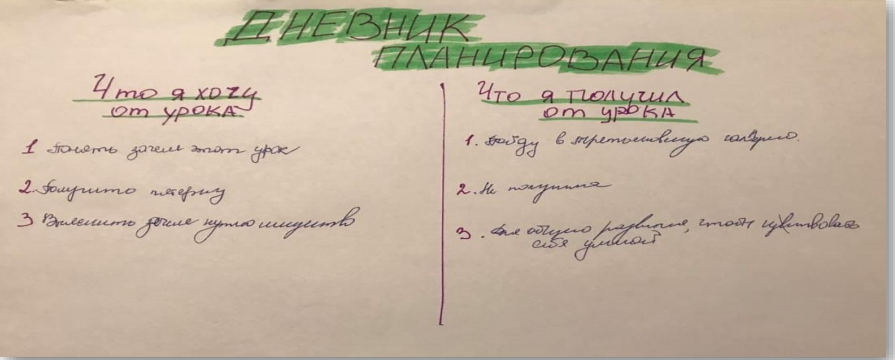 ДНЕВНИК
ПЛАНИРОВАНИЯ
Что я хочу
от урока
1 Понять зачем этот урок
2. Получить пятерку
3 Выяснить зачем нужно искусство
Что я получил
от урока
1. Пойду в третьяковскую галерею.
2. Не получила
3. Для общего развития, чтобы чувствовать
себя умной